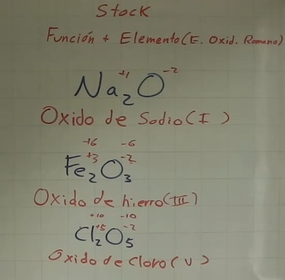 Stock
Función + Elemento (E. Oxid. Romano)
+1 -2
Na₂O
Oxido de Sodio (I)
+6 -6
+3 -2
Fe₂O₃
Oxido de hierro (III)
+10 -10
+5 -2
Cl₂O₅
Oxido de Cloro (V)